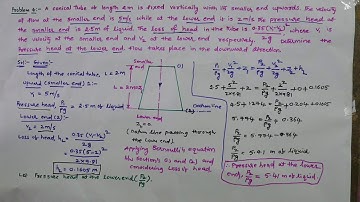 Problem 6:- A conical Tube of length 2m is fixed vertically with its smaller end upwards. The velocity
of flow at the smaller end is 5m/s while at the lower end it is 2m/s. The pressure head at
the smaller end is 2.5m of liquid. The loss of head in the Tube is 0.35(V₁-V₂)²/2g where V₁ is
the velocity at the smaller end and V₂ at the lower end respectively. Determine the
pressure head at the lower end. Flow takes place in the downward direction.
Sol:- Given:
Length of the conical tube, L = 2m
upward (smaller end) 1:-
V₁ = 5 m/s
Pressure head, P₁/ρg = 2.5 m of liquid
Lower end (2):-
V₂ = 2 m/s
Loss of head, hL = 0.35(V₁-V₂)²/2g
= 0.35(5-2)²/2×9.81
hL = 0.1605 m
Pressure head at the lower end (P₂/ρg)
Smaller end
(1)
L = 2m
(2)
Datum line
Lower end
Z₂ = 0
(datum line passing through
the lower end).
Applying Bernoulli's equation
at sections (1) and (2) and
considering loss of head
P₁/ρg + V₁²/2g + Z₁ = P₂/ρg + V₂²/2g + Z₂ + hL
2.5 + 5²/2×9.81 + 2 = P₂/ρg + 2²/2×9.81 + 0 + 0.1605
P₂/ρg = 5.41 m of liquid
∴ Pressure head at the lower
end, P₂/ρg = 5.41 m of liquid.